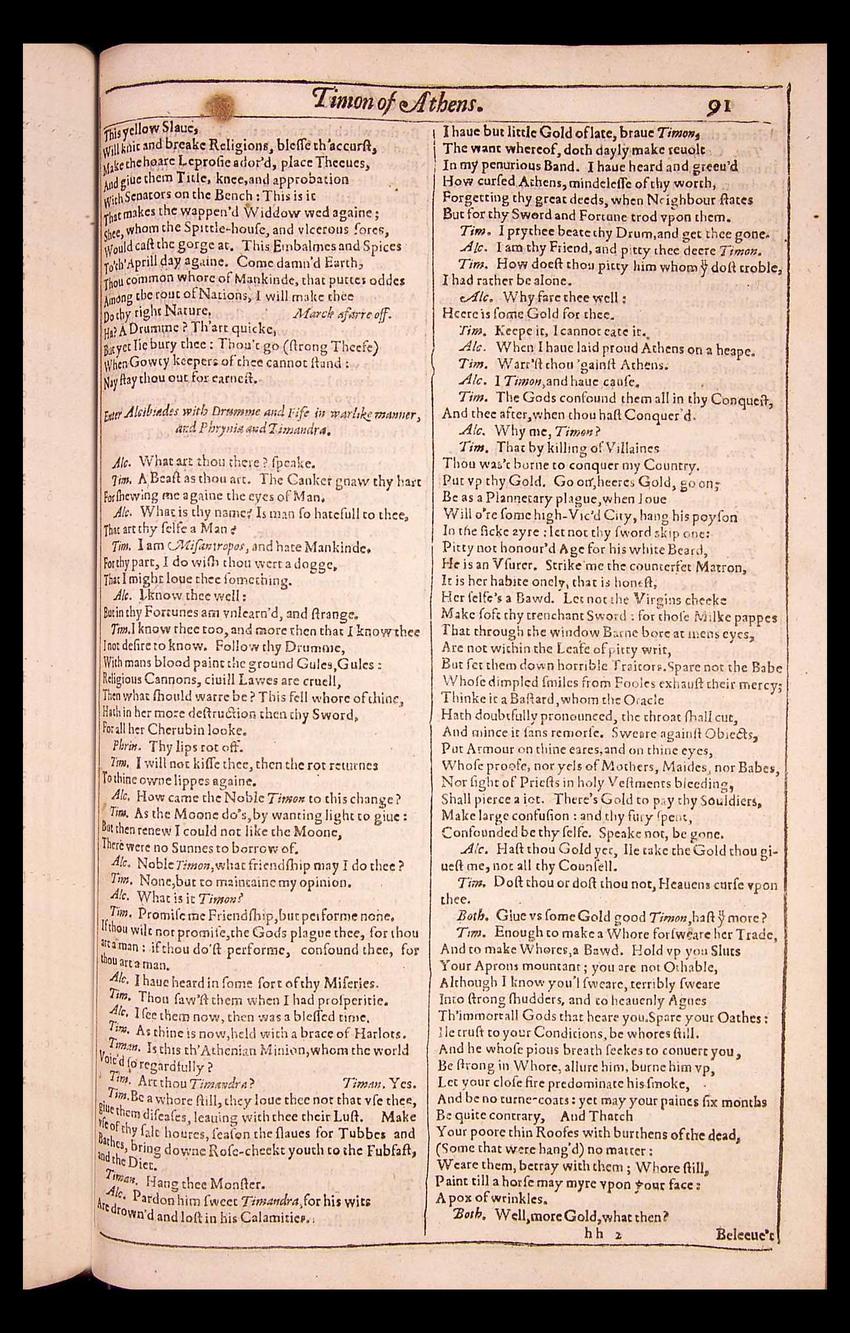 Timon of Athens. 91
This yellow Slaue,
Will knit and breake Religions, blesse th'accurst,
Make the hoare Leprosie ador'd, place Theeues,
And giue them Title, knee, and approbation
With Senators on the Bench : This is it
That makes the wappen'd Widdow wed againe ;
Shee, whom the Spittle-house, and vlcerous sores,
Would cast the gorge at. This Embalmes and Spices
To'th'Aprill day againe. Come damn'd Earth,
Thou common whore of Mankinde, that puttes oddes
Among the rout of Nations, I will make thee
Do thy right Nature. March afarre off.
Ha? A Drumme ? Th'art quicke,
But yet Ile bury thee : Thou't go (strong Theefe)
When Gowty keepers of thee cannot stand :
Nay stay thou out for earnest.
Enter Alcibiades with Drumme and Fife in warlike manner,
and Phrynia and Timandra.
Alc. What art thou there ? speake.
Tim. A Beast as thou art. The Canker gnaw thy hart
For shewing me againe the eyes of Man.
Alc. What is thy name? Is man so hatefull to thee,
That art thy selfe a Man ?
Tim. I am Misantropos, and hate Mankinde.
For thy part, I do wish thou wert a dogge,
That I might loue thee something.
Alc. I know thee well :
But in thy Fortunes am vnlearn'd, and strange.
Tim. I know thee too, and more then that I know thee
I not desire to know. Follow thy Drumme,
With mans blood paint the ground Gules, Gules :
Religious Cannons, ciuill Lawes are cruell,
Then what should warre be ? This fell whore of thine,
Hath in her more destruction then thy Sword,
For all her Cherubin looke.
Phrin. Thy lips rot off.
Tim. I will not kisse thee, then the rot returnes
To thine owne lippes againe.
Alc. How came the Noble Timon to this change ?
Tim. As the Moone do's, by wanting light to giue :
But then renew I could not like the Moone,
There were no Sunnes to borrow of.
Alc. Noble Timon, what friendship may I do thee ?
Tim. None, but to maintaine my opinion.
Alc. What is it Timon?
Tim. Promise me Friendship, but performe none.
If thou wilt not promise, the Gods plague thee, for thou
art a man : if thou do'st performe, confound thee, for
thou art a man.
Alc. I haue heard in some sort of thy Miseries.
Tim. Thou saw'st them when I had prosperitie.
Alc. I see them now, then was a blessed time.
Tim. As thine is now, held with a brace of Harlots.
Timan. Is this th'Athenian Minion, whom the world
Voic'd so regardfully ?
Tim. Art thou Timandra? Timan. Yes.
Tim. Be a whore still, they loue thee not that vse thee,
giue them diseases, leauing with thee their Lust. Make
vse of thy salt houres, season the slaues for Tubbes and
Bathes, bring downe Rose-cheekt youth to the Fubfast,
and the Diet.
Timan. Hang thee Monster.
Alc. Pardon him sweet Timandra, for his wits
Are drown'd and lost in his Calamities.
I haue but little Gold of late, braue Timon,
The want whereof, doth dayly make reuolt
In my penurious Band. I haue heard and greeu'd
How cursed Athens, mindelesse of thy worth,
Forgetting thy great deeds, when Neighbour states
But for thy Sword and Fortune trod vpon them.
Tim. I prythee beate thy Drum, and get thee gone.
Alc. I am thy Friend, and pitty thee deere Timon.
Tim. How doest thou pitty him whom yͤ dost troble,
I had rather be alone.
Alc. Why fare thee well :
Heere is some Gold for thee.
Tim. Keepe it, I cannot eate it.
Alc. When I haue laid proud Athens on a heape.
Tim. Warr'st thou 'gainst Athens.
Alc. I Timon, and haue cause.
Tim. The Gods confound them all in thy Conquest,
And thee after, when thou hast Conquer'd.
Alc. Why me, Timon?
Tim. That by killing of Villaines
Thou was't borne to conquer my Country.
Put vp thy Gold. Go on, heeres Gold, go on;
Be as a Plannetary plague, when Ioue
Will o're some high-Vic'd City, hang his poyson
In the sicke ayre : let not thy sword skip one:
Pitty not honour'd Age for his white Beard,
He is an Vsurer. Strike me the counterfet Matron,
It is her habite onely, that is honest,
Her selfe's a Bawd. Let not the Virgins cheeke
Make soft thy trenchant Sword : for those Milke pappes
That through the window Barne bore at mens eyes,
Are not within the Leafe of pitty writ,
But set them down horrible Traitors. Spare not the Babe
Whose dimpled smiles from Fooles exhaust their mercy;
Thinke it a Bastard, whom the Oracle
Hath doubtfully pronounced, the throat shall cut,
And mince it sans remorse. Sweare against Obiects,
Put Armour on thine eares, and on thine eyes,
Whose proofe, nor yels of Mothers, Maides, nor Babes,
Nor sight of Priests in holy Vestments bleeding,
Shall pierce a iot. There's Gold to pay thy Souldiers,
Make large confusion : and thy fury spent,
Confounded be thy selfe. Speake not, be gone.
Alc. Hast thou Gold yet, Ile take the Gold thou gi-
uest me, not all thy Counsell.
Tim. Dost thou or dost thou not, Heauens curse vpon
thee.
Both. Giue vs some Gold good Timon, hast yͧ more ?
Tim. Enough to make a Whore forsweare her Trade,
And to make Whores, a Bawd. Hold vp you Sluts
Your Aprons mountant ; you are not Othable,
Although I know you'l sweare, terribly sweare
Into strong shudders, and to heauenly Agues
Th'immortall Gods that heare you. Spare your Oathes :
Ile trust to your Conditions, be whores still.
And he whose pious breath seekes to conuert you,
Be strong in Whore, allure him, burne him vp,
Let your close fire predominate his smoke,
And be no turne-coats : yet may your paines six months
Be quite contrary, And Thatch
Your poore thin Roofes with burthens of the dead,
(Some that were hang'd) no matter :
Weare them, betray with them ; Whore still,
Paint till a horse may myre vpon your face :
A pox of wrinkles.
Both. Well, more Gold, what then?
hh 2 Beleeue't